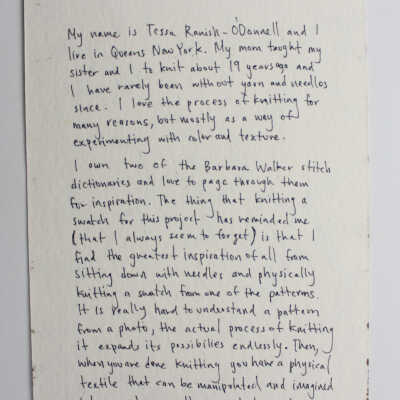 My name is Tessa Ranish-O'Donnell and I
live in Queens New York. My mom taught my
sister and I to knit about 19 years ago and
I have rarely been without yarn and needles
since. I love the process of knitting for
many reasons, but mostly as a way of
experimenting with color and texture.
I own two of the Barbara Walker stitch
dictionaries and love to page through them
for inspiration. The thing that knitting a
swatch for this project has reminded me
(that I always seem to forget) is that I
find the greatest inspiration of all from
sitting down with needles and physically
knitting a swatch from one of the patterns.
It is really hard to understand a pattern
from a photo, the actual process of knitting
it expands its possibilies endlessly. Then,
when you are done knitting you have a physical
textile that can be manipulated and imagined